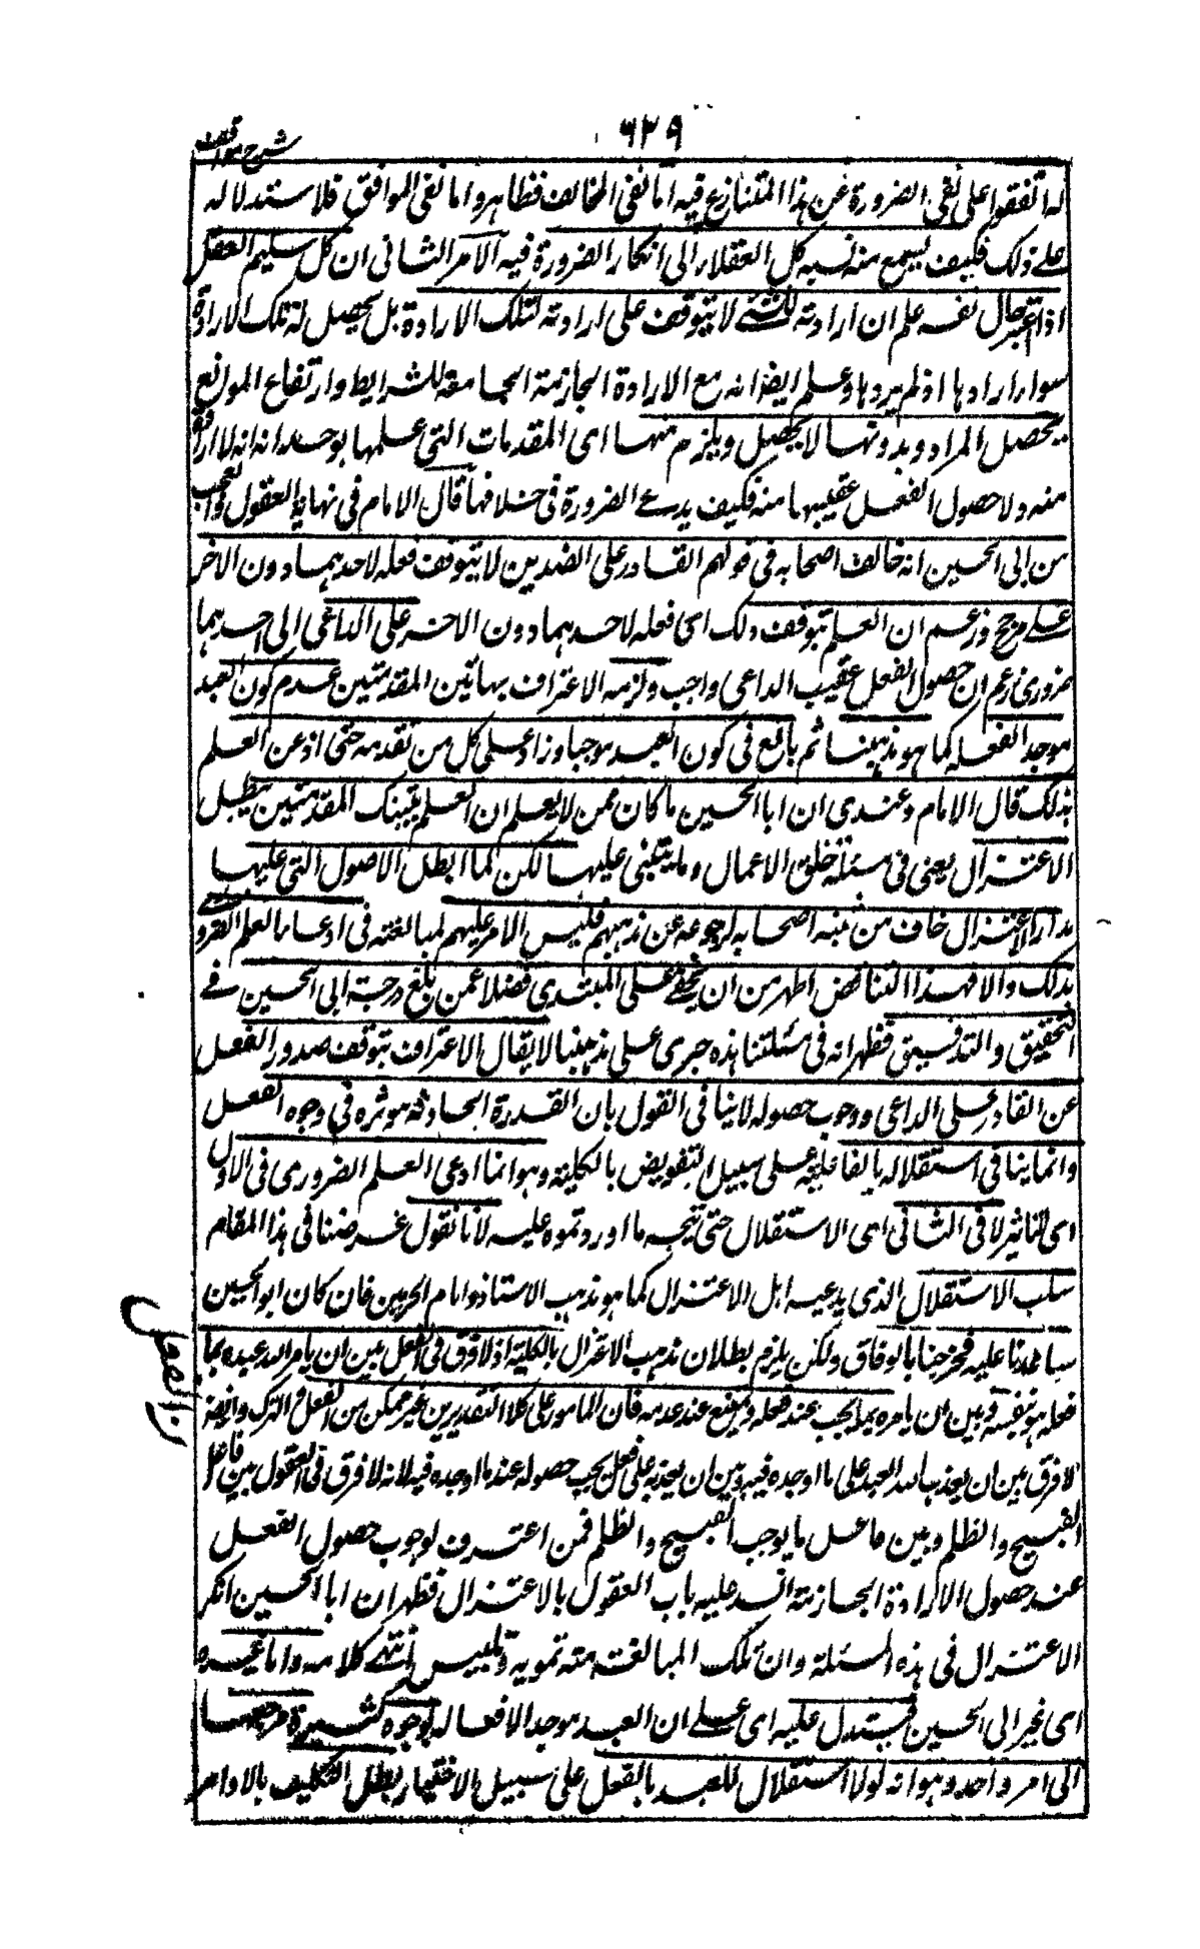 ٦٢٩
شرح مواقف
له اتفقوا على نفى الضرورة عن هذا المتنازع فيه اما نفى المخالف فظاهر واما نفى الموافق فلاستدلاله
على ذلك فكيف يسمع منه نسبه كل العقلاء الى انكار الضرورة فيه الامر الثانى ان كل سليم العقل
اذا اعتبر حال نفسه علم ان ارادته للشئ لا تتوقف على ارادته لتلك الارادة بل يحصل له تلك الارادة
سواء ارادها او لم يردها وعلم ايضا انه مع الارادة الجازمة الجامعة للشرايط وارتفاع الموانع
يحصل المراد وبدونها لا يحصل ويلزم منها اى المقدمات التى علمها بوجدانه انه لا ارادة
منه ولا حصول الفعل عقيبها منه فكيف يدعى الضرورة فى خلافها قال الامام فى نهاية العقول والعجب
من ابى الحسين انه خالف اصحابه فى قولهم القادر على الضدين لا يتوقف فعله لاحدهما دون الاخر
على مرجح وزعم ان العلم بتوقف ذلك اى فعله لاحدهما دون الاخر على الداعى الى احدهما
ضرورى زعم ان حصول الفعل عقيب الداعى واجب ولزمه الاعتراف بهاتين المقدمتين عدم كون العبد
موجدا لفعله كما هو مذهبنا ثم بالغ فى كون العبد موجبا وزاد على كل من تقدمه حتى ادعى العلم
بذلك قال الامام وعندى ان ابا الحسين ما كان ممن لا يعلم ان العلم بتينك المقدمتين يبطل
الاعتزال يعنى فى مسئلة خلق الاعمال وما يبتنى عليها لكن لما ابطل الاصول التى عليها
مدار الاعتزال خاف من تنبه اصحابه لرجوعه عن مذهبهم فلبس الامر عليهم لمبالغته فى ادعاء العلم الضرورى
بذلك والا فهذا التناقض اظهر من ان يخفى على المبتدى فضلا عمن بلغ درجة ابى الحسين فى
التحقيق والتدقيق فظهر انه فى مسئلتنا هذه جرى على مذهبنا لا يقال الاعتراف بتوقف صدور الفعل
عن القادر على الداعى ووجوب حصوله لا ينافى القول بان القدرة الحادثة موثره فى وجود الفعل
وانما ينافى استقلاله بالفاعلية على سبيل التفويض بالكلية وهو انما ادعى العلم الضرورى فى الاول
اى التاثير لا فى الثانى اى الاستقلال حتى يتجه ما اوردتموه عليه لانا نقول غرضنا فى هذا المقام
سلب الاستقلال الذى يدعيه اهل الاعتزال كما هو مذهب الاستاذ وامام الحرمين فان كان ابو الحسين
ساعدنا عليه فمرحبا بالوفاق ولكن يلزم بطلان مذهب الاعتزال بالكلية اذ لا فرق فى العقل بين ان يامر الله عبده بما
فعله هو بنفسه وبين ان يامره بما يجب عند فعله ويمتنع عند عدمه فان المامور على كلا التقديرين غير ممكن من الفعل والترك وايضا
لا فرق بين ان يعذب الله العبد على ما اوجده فيه وبين ان يعذبه على فعل يجب حصوله عند ما اوجده فيه لانه لا فرق فى العقول بين فاعل
القبيح والظلم وبين فاعل ما يوجب القبيح والظلم فمن اعترف بوجوب حصول الفعل
عند حصول الارادة الجازمة انسد عليه باب العقول بالاعتزال فظهر ان ابا الحسين انكر
الاعتزال فى هذه المسئلة وان تلك المبالغة منه تمويه وتلبيس انتهى كلامه واما غيره
اى غير ابى الحسين فيستدل عليه اى على ان العبد موجد لافعاله لوجوه كثيرة مرجعها
الى امر واحد وهو انه لولا استقلال للعبد بالفعل على سبيل الاختيار بطل التكليف بالاوامر